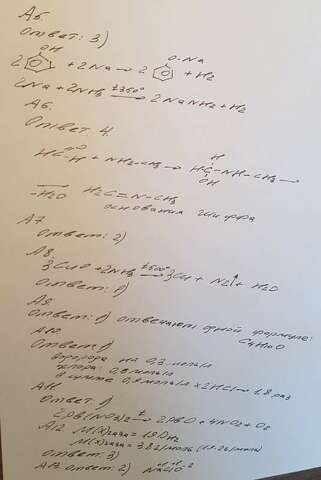 А5.
Ответ: 3)
OH O-Na
2 + 2Na → 2 + H2
2Na + 2NH3 t 350° → 2NaNH2 + H2
А6.
Ответ 4.
HC=O-H + NH2-CH3 → HC-NH-CH3 →
H
OH
-H2O H2C=N-CH3
основания Шиффа
А7.
Ответ: 2)
А8.
3CuO + 2NH3 t 500° → 3Cu + N2↑ + H2O
Ответ: 1)
А9.
Ответ: 1) отвечают одной формуле:
C4H10O
А10.
Ответ: 1)
водорода на 0,3 моль
хлора: 0,6 моль
в сумме 0,9 моль x 2HCl → 1,8 раз
А11.
Ответ: 1)
2Pb(NO3)2 t → 2PbO + 4NO2 + O2
А12. M(X) газа = 19DH2
M(X) газа = 38 г/моль (1.9·2 г/моль)
Ответ: 3)
А13. Ответ: 2) NaClO